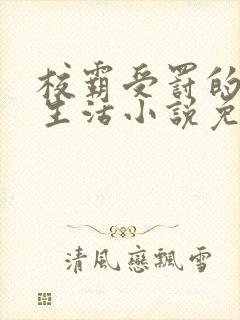 校霸受罚的
生活小说免
清風戀飄雪